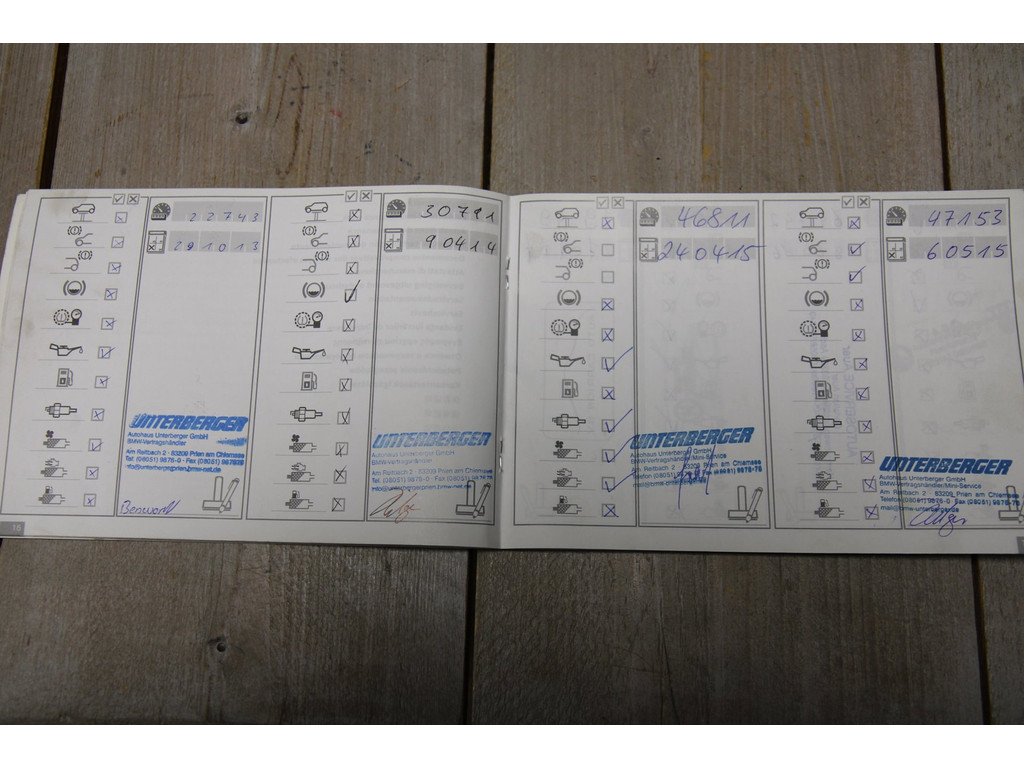 22743
291013
UNTERBERGER
Autohaus Unterberger GmbH
BMW-Vertragshändler
Am Reitbach 2 · 83209 Prien am Chiemsee
Tel. (08051) 9876-0 · Fax (08051) 987676
16
30791
90414
UNTERBERGER
Autohaus Unterberger GmbH
BMW-Vertragshändler
Am Reitbach 2 · 83209 Prien am Chiemsee
Tel. (08051) 9876-0 · Fax (08051) 98 76 76
46811
240415
UNTERBERGER
Autohaus Unterberger GmbH
BMW-Vertragshändler/Mini-Service
Am Reitbach 2 · 83209 Prien am Chiemsee
Telefon (08051) 9876-0 · Fax (08051) 9876-76
47153
60515
UNTERBERGER
Autohaus Unterberger GmbH
BMW-Vertragshändler/Mini-Service
Am Reitbach 2 · 83209 Prien am Chiemsee
Telefon (08051) 9876-0 · Fax (08051) 9876-76
mail@bmw-unterberger.de